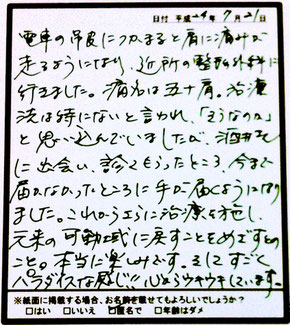 日付 平成24年7月21日
電車の吊皮につかまると肩に痛みが
走るようになり、近所の整形外科に
行きました。病名は五十肩。治療
法は特にないと言われ、「そうなのか」
と思い込んでいましたが、酒井さん
に出会い、診てもらったところ、今まで
届かなかったところに手が届くようになり
ました。これからさらに治療を施し、
元来の可動域に戻すことをめざすとの
こと。本当に楽しみです。そしてすごく
パラダイスな感じ!!心からウキウキしています。
※紙面に掲載する場合、お名前を載せてもよろしいでしょうか?
□はい □いいえ □匿名で □年齢はダメ